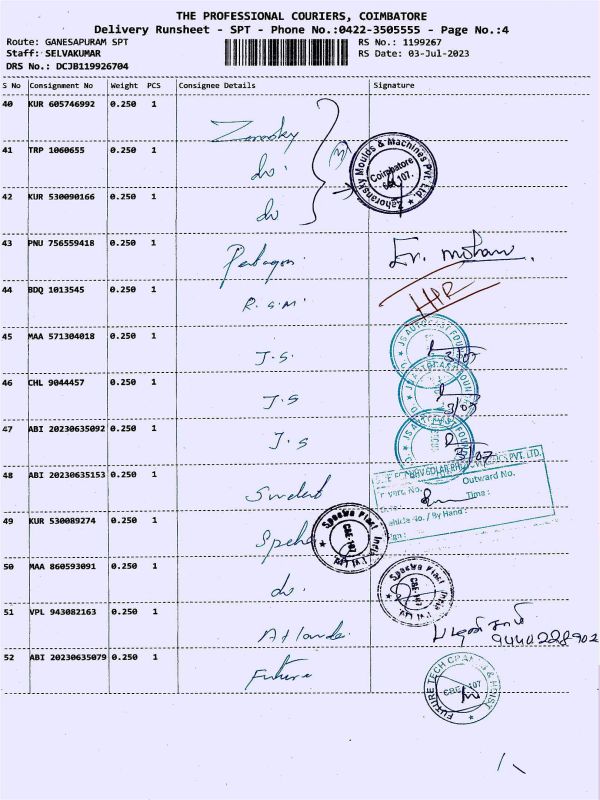 THE PROFESSIONAL COURIERS, COIMBATORE
Delivery Runsheet - SPT - Phone No.:0422-3505555 - Page No.:4
Route: GANESAPURAM SPT RS No.: 1199267
Staff: SELVAKUMAR RS Date: 03-Jul-2023
DRS No.: DCJB119926704
S No Consignment No Weight PCS Consignee Details Signature
40 KUR 605746992 0.250 1
41 TRP 1060655 0.250 1 do. Zahoransky Moulds & Machines Pvt. Ltd. Coimbatore 107.
42 KUR 530090166 0.250 1 do
43 PNU 756559418 0.250 1 mohan
44 BDQ 1013545 0.250 1 R.S.M.
45 MAA 571304018 0.250 1 J.S. 3/07
46 CHL 9044457 0.250 1 J.S 3/07
47 ABI 20230635092 0.250 1 J.S 3/07
48 ABI 20230635153 0.250 1 PVT. LTD.
Outward No.
Time :
Vehicle No. / By Hand :
49 KUR 530089274 0.250 1 CBE-107
50 MAA 860593091 0.250 1 do.
51 VPL 943082163 0.250 1
52 ABI 20230635079 0.250 1 Future FUTURE TECH CBE-107